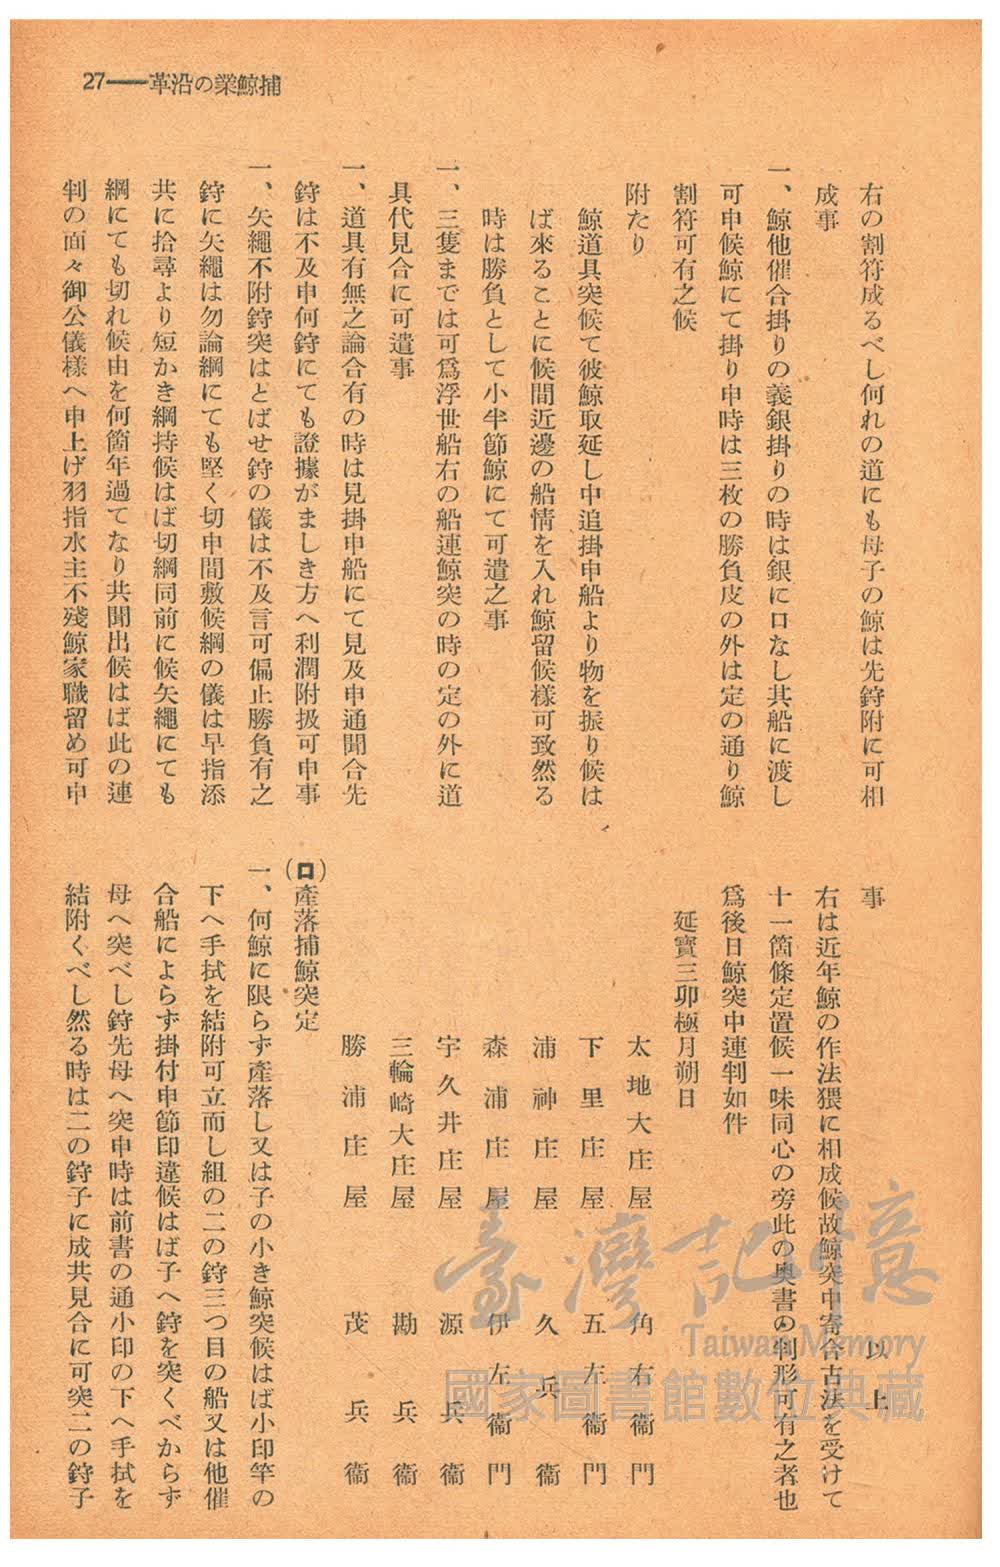 27——革沿の業鯨捕
右の割符成るべし何れの道にも母子の鯨は先鋝附に可相
成事
一、鯨他催合掛りの義銀掛りの時は銀に口なし其船に渡し
可申候鯨にて掛り申時は三枚の勝負皮の外は定の通り鯨
割符可有之候
附たり
鯨道具突候て彼鯨取延し中追掛申船より物を振り候は
ば來ることに候間近邊の船情を入れ鯨留候樣可致然る
時は勝負として小半節鯨にて可遣之事
一、三隻までは可爲浮世船右の船連鯨突の時の定の外に道
具代見合に可遣事
一、道具有無之論合有の時は見掛申船にて見及申通聞合先
鋝は不及申何鋝にても證據がましき方へ利潤附扱可申事
一、矢繩不附鋝突はとばせ鋝の儀は不及言可偏止勝負有之
鋝に矢繩は勿論綱にても堅く切申間敷候綱の儀は早指添
共に拾尋より短かき綱持候はば切綱同前に候矢繩にても
綱にても切れ候由を何箇年過てなり共聞出候はば此の連
判の面々御公儀樣へ申上げ羽指水主不殘鯨家職留め可申
事　以上
右は近年鯨の作法猥に相成候故鯨突中寄合古法を受けて
十一箇條定置候一味同心の旁此の奧書の判形可有之者也
爲後日鯨突中連判如件
延寶三卯極月朔日
太地大庄屋　角右衞門
下里庄屋　五左衞門
浦神庄屋　久兵衞
森浦庄屋　伊左衞門
宇久井庄屋　源兵衞
三輪崎大庄屋　勘兵衞
勝浦庄屋　茂兵衞
(ロ)產落捕鯨突定
一、何鯨に限らず產落し又は子の小き鯨突候はば小印竿の
下へ手拭を結附可立而し組の二の鋝三つ目の船又は他催
合船によらず掛付申節印違候はば子へ鋝を突くべからず
母へ突べし鋝先母へ突申時は前書の通小印の下へ手拭を
結附くべし然る時は二の鋝子に成共見合に可突二の鋝子
臺灣記憶
Taiwan Memory
國家圖書館數位典藏